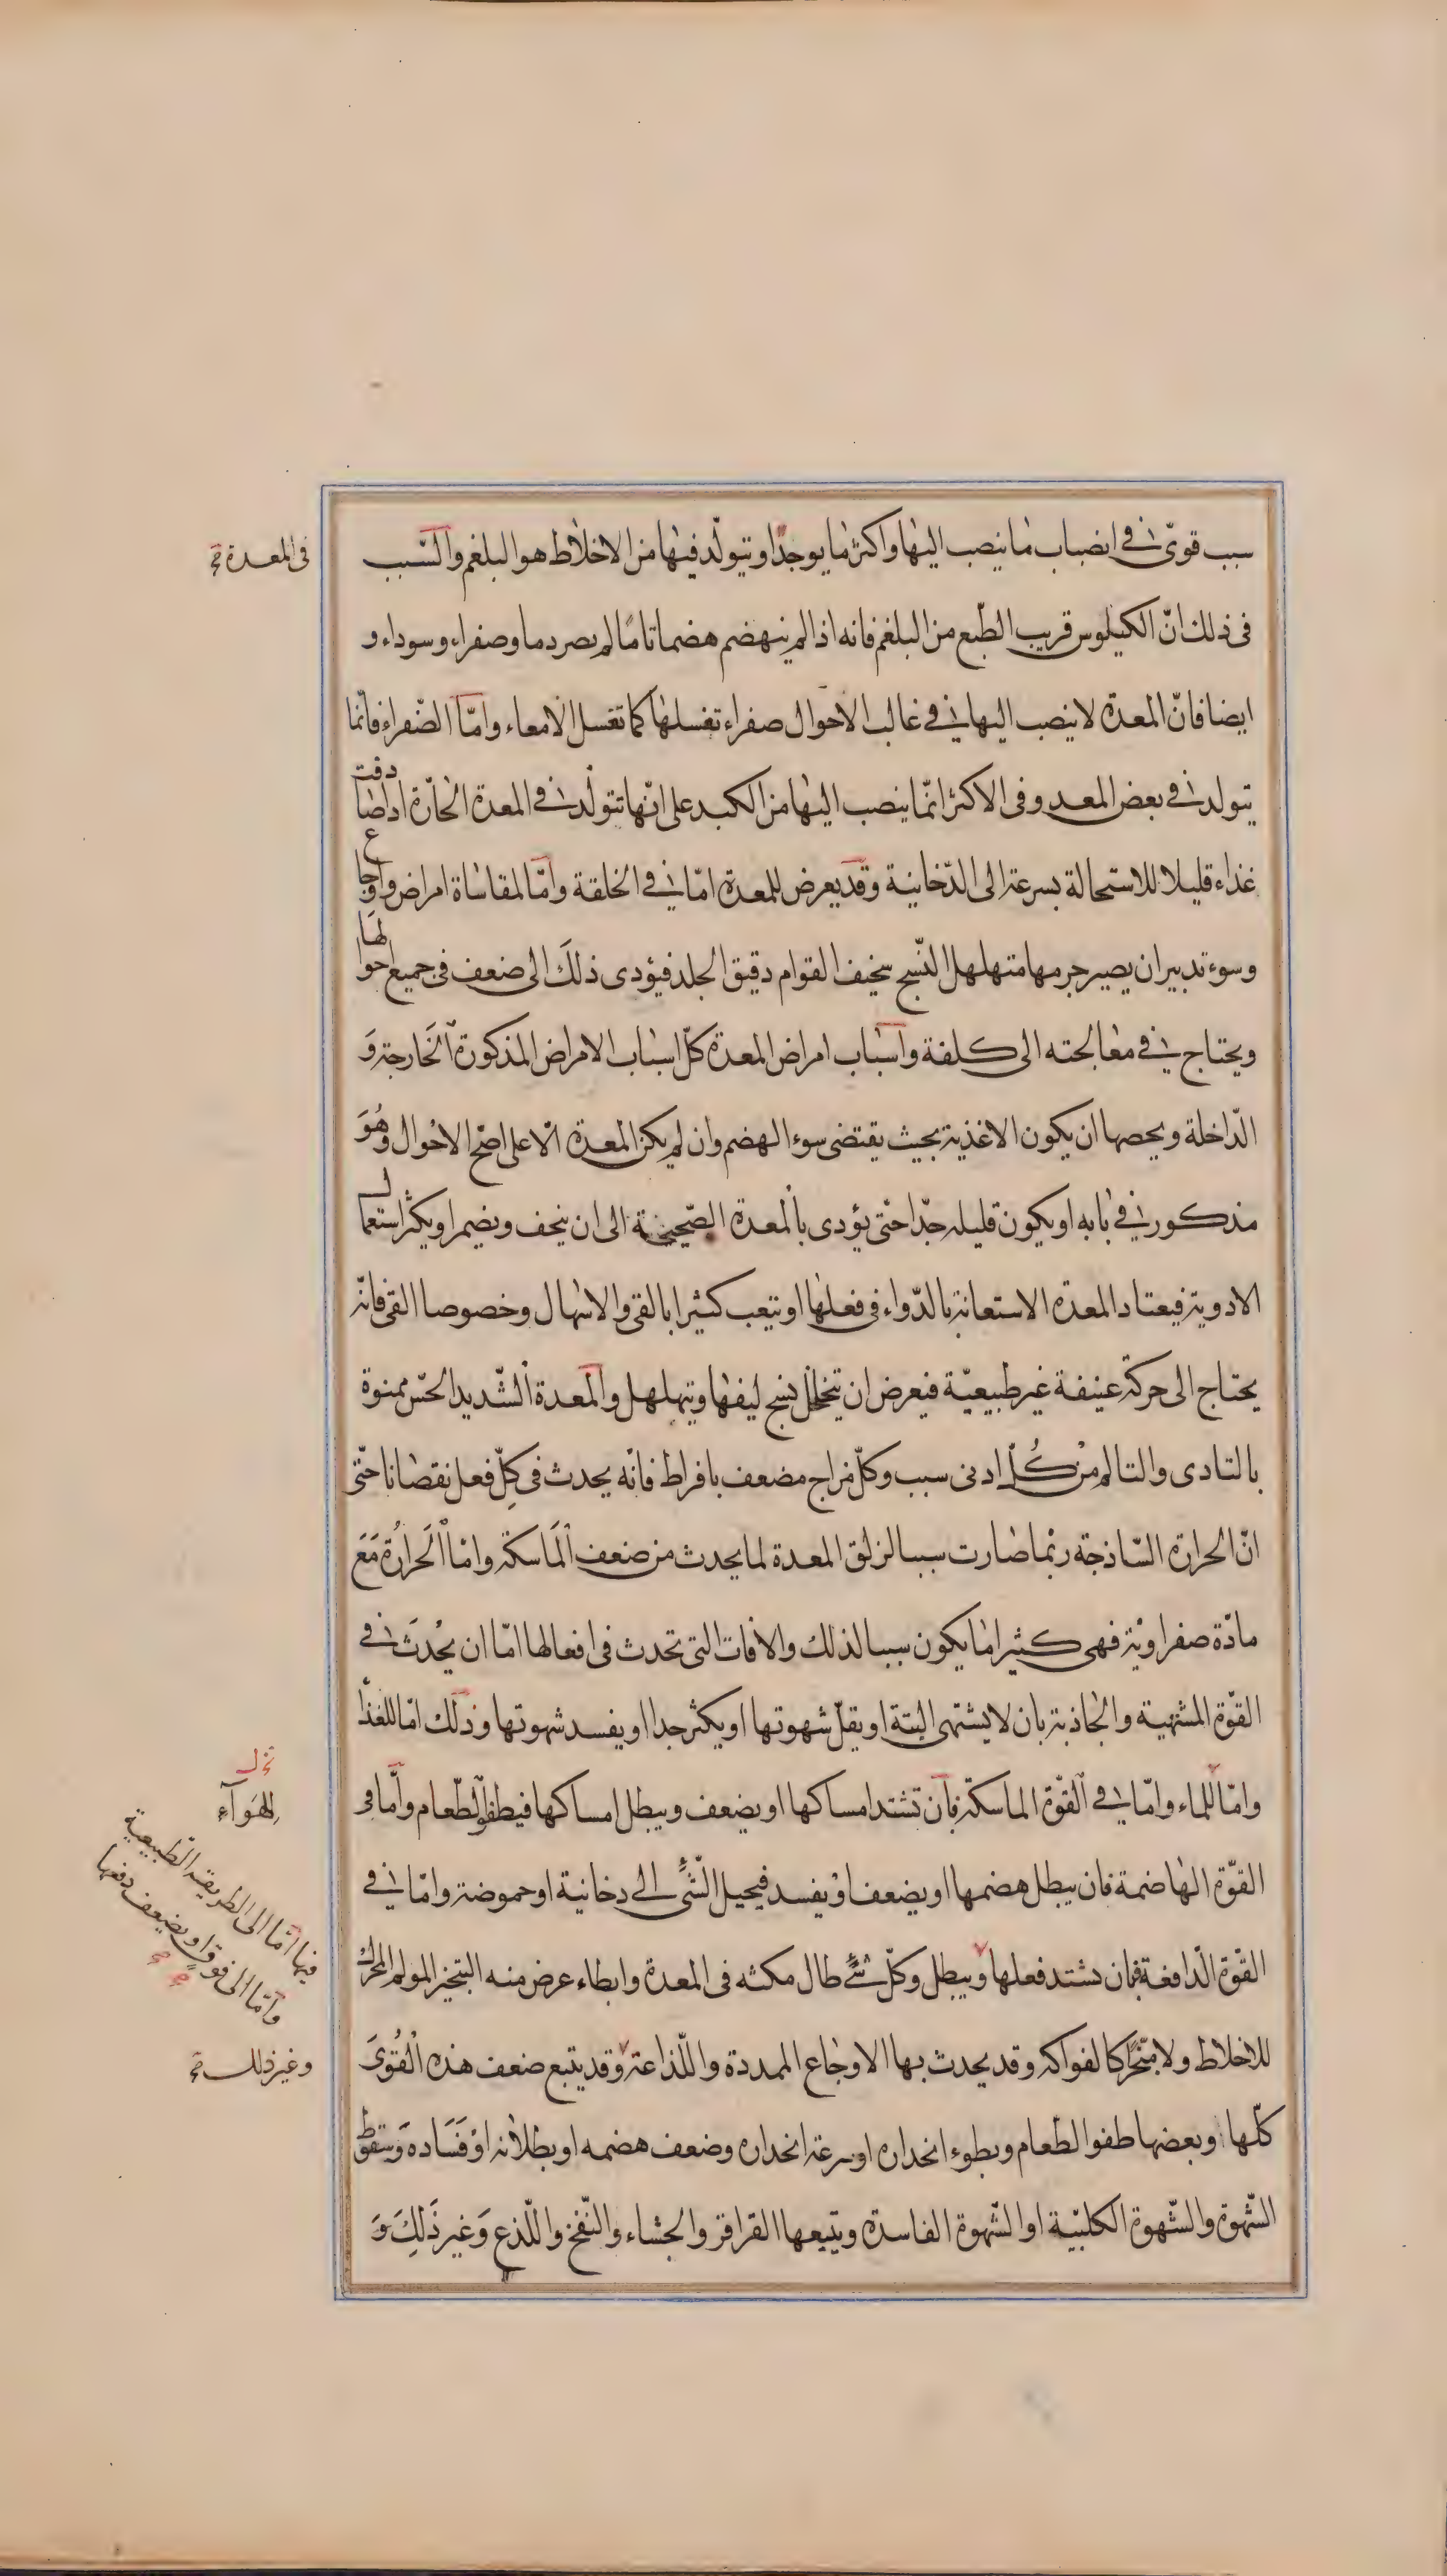 سبب قوى فى انصباب ما ينصب اليها واكثر ما يوجد او يتولد فيها من الاخلاط هو البلغم والسبب
فى المعدة
فى ذلك انّ الكيلوس قريب الطّبع من البلغم فانه اذا لم ينهضم هضما تامّا لم يصر دما وصفراء وسوداء و
ايضا فانّ المعدة لا ينصب اليها فى غالب الاحوال صفراء تغسلها كما تغسل الامعاء وامّا الصّفراء فانّما
يتولد فى بعض المعد وفى الاكثر انّما ينصب اليها من الكبد على انّها تتولّد فى المعدة الحارّة اذا صادفت
غذاء قليلا للاستحالة بسرعة الى الدّخانية وقد يعرض للمعدة امّا فى الخلقة وامّا لمقاساة امراض واوجاع
وسوء تدبير ان يصير جرمها متهلهل النّسج سخيف القوام دقيق الجلد فيؤدى ذلك الى ضعف فى جميع احوالها
ويحتاج فى معالجته الى كلفة واسباب امراض المعدة كلّ اسباب الامراض المذكورة الخارجة و
الدّاخلة ويخصها ان يكون الاغذية بحيث يقتضى سوء الهضم وان لم يكن المعدة الّا على اصحّ الاحوال وهو
مذكور فى بابه او يكون قليله جدّا حتّى يؤدى بالمعدة الصّحيحة الى ان ينحف ويضمر او يكثر استعمال
الادوية فيعتاد المعدة الاستعانة بالدّواء فى فعلها او يتعب كثيرا بالقى والاسهال وخصوصا القى فانّه
يحتاج الى حركة عنيفة غير طبيعيّة فيعرض ان يتخلخل نسج ليفها ويتهلهل والمعدة الشّديد الحسّ ممنوة
بالتادى والتالم من كُلّ ادنى سبب وكلّ مزاج مضعف بافراط فانّه يحدث فى كلّ فعل نقصانا حتّى
انّ الحرارة السّاذجة ربّما صارت سببا لزلق المعدة لما يحدث من ضعف الماسكة وامّا الحرارة مع
مادّة صفراويّة فهى كثيرا ما يكون سببا لذلك والافات التى تحدث فى افعالها امّا ان يحدث فى
القوّة المشتهية والجاذبة بان لا يشتهى البتة او يقلّ شهوتها او يكثر جدا او يفسد شهوتها وذلك امّا للغذا
وامّا للماء وامّا فى القوّة الماسكة بان تشتد امساكها او يضعف ويبطل امساكها فيطفو الطّعام وامّا فى
للهوآء
القوّة الهاضمة فان يبطل هضمها او يضعف او يفسد فيحيل الشّئ الى دخانية او حموضة وامّا فى
القوّة الدّافعة فبان يشتد فعلها ويبطل وكلّ شئ طال مكثه فى المعدة وابطاء عرض منه التبخير المولم المحرك
فيها امّا الى الطريقة الطّبيعية
وامّا الى فوق او يضعف دفعها
للاخلاط ولا مبخّر كالفواكه وقد يحدث بها الاوجاع الممددة واللّذاعة وقد يتبع ضعف هذه القُوىَ
وغير ذلك
كلّها وبعضها طفو الطّعام وبطوء انحداره او سرعة انحداره وضعف هضمه او بطلانه او فساده وسقوط
الشّهوة والشّهوة الكلبيّة او الشّهوة الفاسدة ويتبعها القراقر والجشاء والنّفخ واللّذع وَغير ذَلِكَ وَ